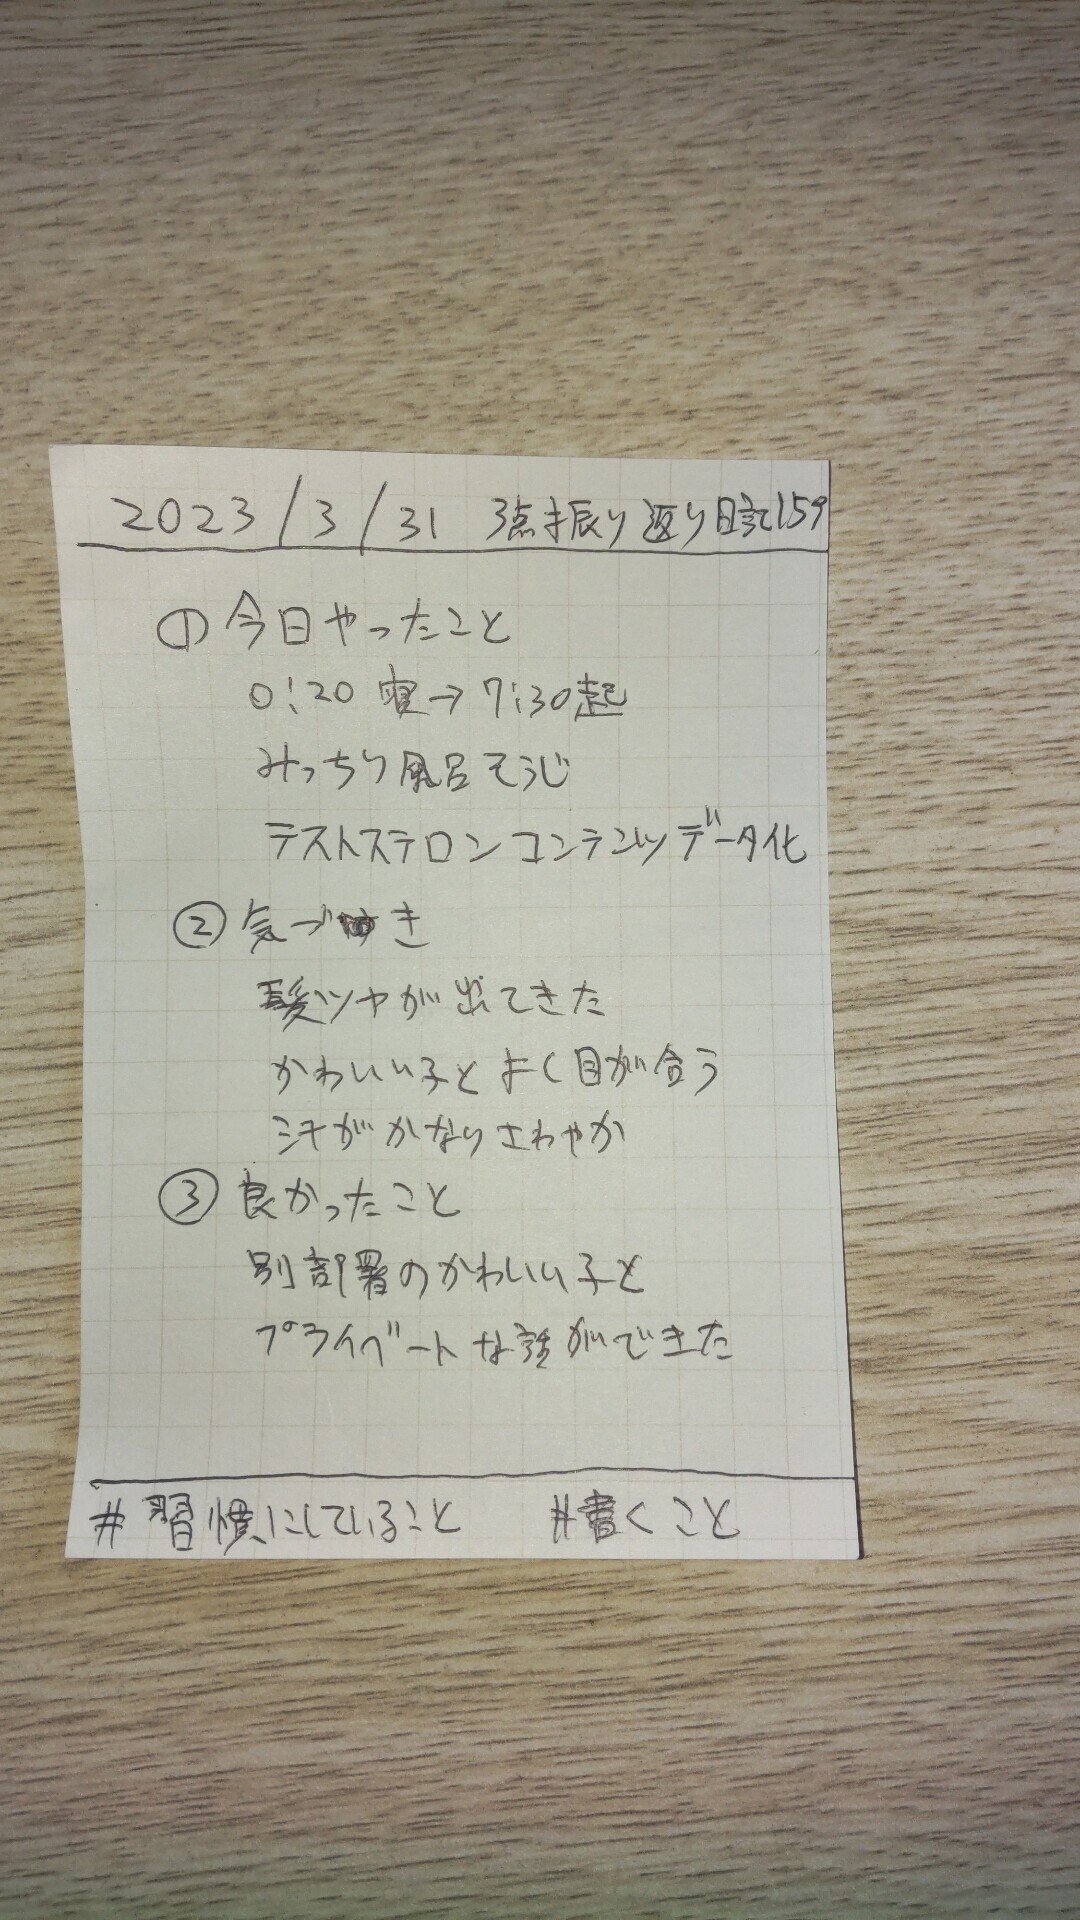 2023/3/31 3点振り返り日記159
① 今日やったこと
0:20 寝→7:30起
みっちり風呂そうじ
テストステロンコンテンツデータ化
② 気づき
髪ツヤが出てきた
かわいい子とよく目が合う
汗がかなりさわやか
③ 良かったこと
別部署のかわいい子と
プライベートな話ができた
#習慣にしていること #書くこと